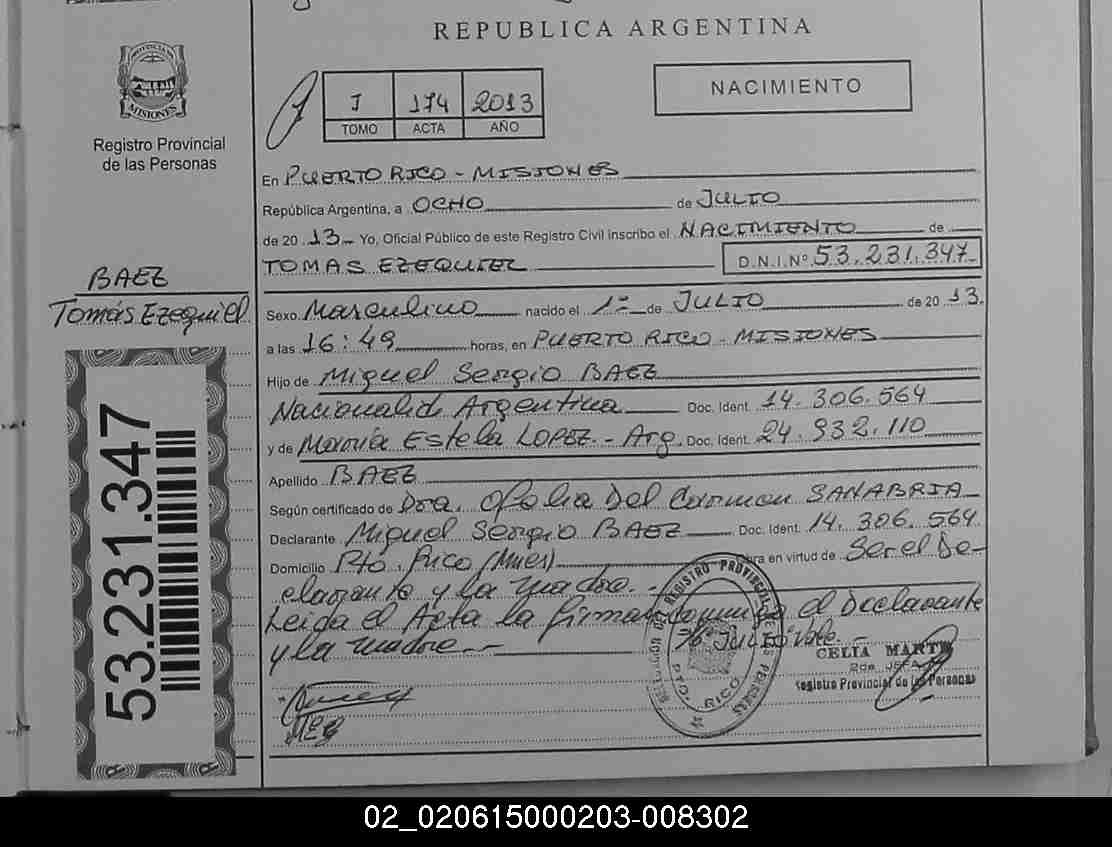 REPUBLICA ARGENTINA
PROVINCIA DE
MISIONES
Registro Provincial
de las Personas
I 174 2013
TOMO ACTA AÑO
NACIMIENTO
En PUERTO RICO - MISIONES
República Argentina, a OCHO de JULIO
de 20 13- Yo, Oficial Público de este Registro Civil inscribo el NACIMIENTO de
TOMAS EZEQUIEL D.N.I.Nº 53.231.347
BAEZ
Tomás Ezequiel
Sexo Masculino nacido el 1º de JULIO de 20 13.
a las 16:49 horas, en PUERTO RICO - MISIONES
Hijo de Miguel Sergio BAEZ
Nacionalid Argentina Doc. Ident. 14.306.564
y de María Estela LOPEZ - Arg. Doc. Ident. 24.932.110
Apellido BAEZ
Según certificado de Dra. Ofelia Del Carmen SANABRIA
Declarante Miguel Sergio BAEZ Doc. Ident. 14.306.564
Domicilio Pto. Rico (Mnes) Obra en virtud de Ser el De-
clarante y la madre. -
Leida el Acta la firman conmigo el Declarante
y la madre - JULIO Vale. -
53.231.347
REGISTRO PROVINCIAL DE LAS PERSONAS
PTO. RICO
CELIA MARTE
2da. JEFA
Registro Provincial de las Personas
MEB
02_020615000203-008302